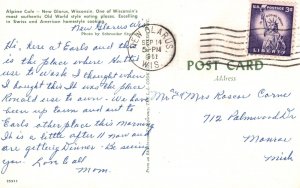 Alpine Cafe - New Glarus, Wisconsin. One of Wisconsin's
most authentic Old World style eating places. Excelling
in Swiss and American homestyle cooking.
New Glarus Wis
Photo by Schneider
Hi, here at Earls and this
is the place where Ruth
use to work I thought when
I bought this it was the place
Ronald use to own. We have
been up town and out to
Earls other place this morning
It is a little after 11 now and
are getting Dinner. Be seeing
you. Love to all
Mom.
NEW GLARUS
SEP 14
5 - PM
1961
WIS
3¢
LIBERTY
POST CARD
Address
Mr & Mrs Roscoe Corne
712 Palmwood Dr
Monroe
Mich